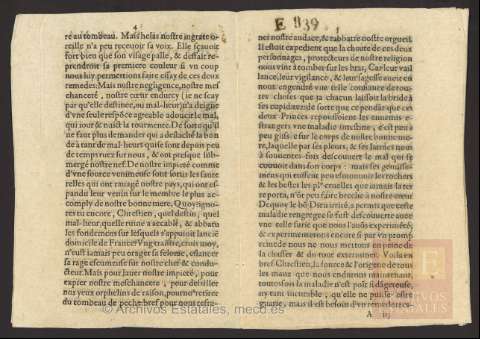 E 1139
4
ré au tombeau. Mais helas nostre ingrate o-
reille n'a peu recevoir sa voix. Elle sçavoit
fort bien que son visage palle, & desfait re-
prendroit sa premiere couleur si un coup
nous luy permettions faire essay de ces deux
remedes: Mais nostre negligence, nostre mes
chanceté, nostre cœur endurcy (ie ne sçay
par qu'elle destinee, ou mal-heur) n'a daigné
d'une seule response agreable adoucir le mal,
qui iour & nuict la tourmente. De sorte qu'il
ne faut plus demander qui a destaché la bon
de à tant de mal-heurs qui se sont depuis peu
de temps ruez sur nous, & ont presque sub-
mergé nostre nef. De nostre impieté comme
d'une source venimeuse sont sortis les saute
relles qui ont ravagé nostre pays, qui ont es-
pandu leur venin sur le membre le plus ac-
comply de nostre bonne mere. Quoy? igno-
res tu encore, Chrestien, quel destin, quel
mal-heur, quelle ruine a accablé, & abatu
les fondemens sur lesquels s'appuioit l'ancié
domicile de France? Ung traistre, crois moy,
n'eust iamais peu oranger sa felonie, eslancer
sa rage escumeuse sur nostre chef & condu-
cteur. Mais pour laver nostre impieté, pour
expier nostre meschanceté, pour dessiller
nos yeux orphelins de raison, pour no° retirer
du tombeau de peché: bref pour nous refre-
5
ner nostre audace, & rabbatre nostre orgueil
Il estoit expedient que la cheute de ces deux
personnages, protecteurs de nostre religion
nous vint à tomber sur les bras, Car leur vail
lance, leur vigilance, & leur sagesse avoit en
nous engendré une telle confiance de tou-
tes choses que ia chacun laissoit la bride à
ses cupiditez: de sorte que ce pendant que ces
deux Princes repoussoient les ennemis e-
strangers une maladie intestine, & est peu à
peu glissee sur le corps de nostre bonne me-
re, laquelle par ses pleurs, & ses larmes nous
a souventes-fois descouvert le mal qui se
couvoit dans son corps: mais ses gemisse-
mens qui eussent peu esmouvoir les rochers
& les bestes les pl° cruelles que iamais la ter
re porta, n'ót peu faire breche à nostre cœur
Dequoy le bó Dieu irrité, a permis que ceste
maladie rengregee se fust descouverte avec
une telle furie que nous avons experimété,
& experimenterons encore si par un promt
remede nous ne nous mettons en peine de
la chasser & du tout exterminer. Voila en
bref Chrestien, la source & l'origine de tous
les maux que nous endurons maintenant,
toutesfois la maladie n'est pas si dagereuse,
ny tant incurable, qu'elle ne puisse estre
guarie, mais il est besoin d'un remede tres-
A iij
E
ARCHIVOS
ESTATALES
© Archivos Estatales, mecd.es